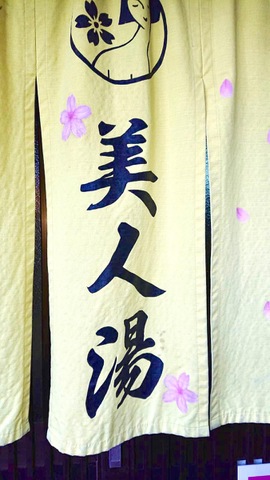 美人湯